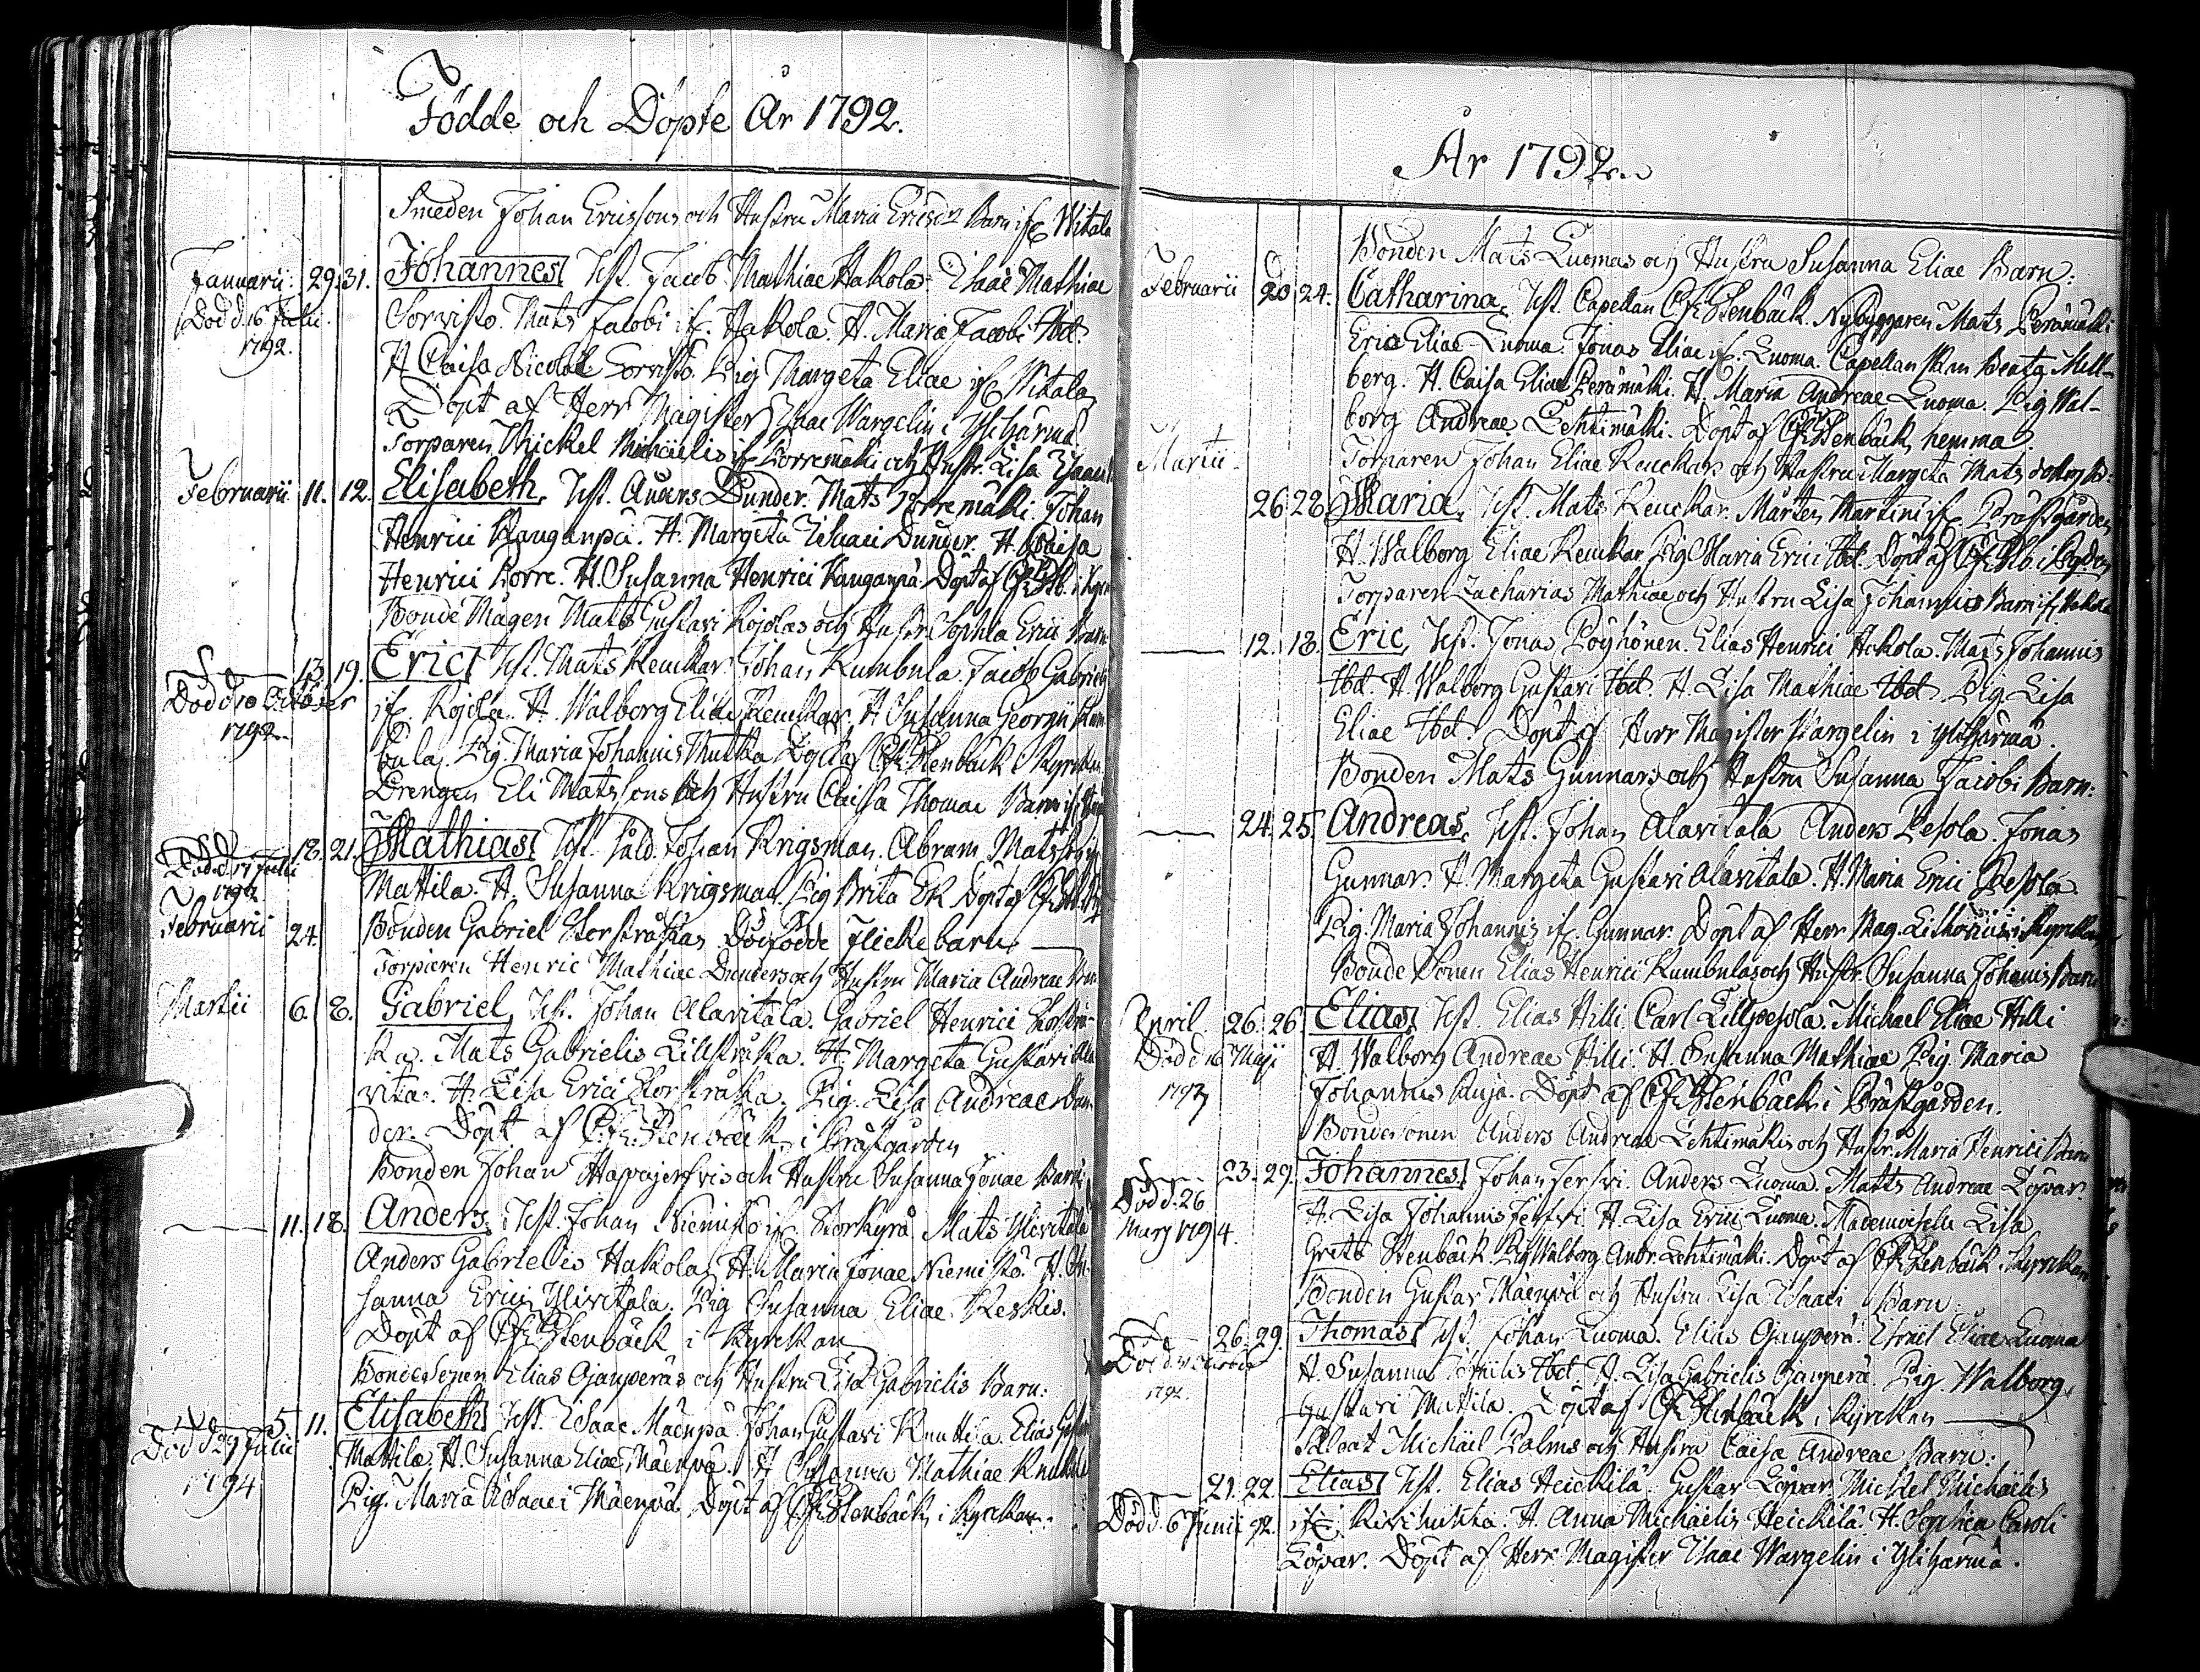 Födde och Döpte År 1792.
Smeden Johan Erissons och Hustru Maria Erics Barn ifr Witala
Januarii. 29. 31. Johannes, Test. Jacob Mathiae Hakola. Isaac Mathiae
Död d. 16 Julii 1792.
Sorvisto. Mats Jacobi ifr. Hakola. H. Maria Jacobi Ibd.
H Caisa Nicolai Sorvisto. Pig Margeta Eliae ifr Witala
Döpt af Herr Magister Isaac Wargelin i Ylihärmä.
Torparen Mickel Michaelis ifr Porremäki och Hustr. Lisa Isaaci
Februarii 11. 12. Elisabeth, Test. Anders Dunder. Mats Porremäki. Johan
Henrici Kauganpä. H. Margeta Dunder. H. Caisa
Henrici Porre. H. Susanna Henrici Kauganpä Döpt af
Bonde Mågen Mats Gustavi Rojolas och Hustru Sophia Erici Barn
13. 19. Eric, Test. Mats Keuckar. Johan Kumbula. Jacob Gabrielis
Död d. 10 October 1792.
ifr. Rojola. H. Walborg Eliae Keuckar. H Susanna Georgii Kum
bula. Pig. Maria Johannis Mutka Döpt af Stenbäck i Kyrckan
Drengen Eli Matssons och Hustru Caissa Thomae Barn ifr
18. 21. Mathias, Test. Såld. Johan Krigsman. Abram Matsson
Död d. 17 Julii 1792
Mattila. H. Susanna Krigsman. Pig Brita Ek Döpt af
Februarii 24. Bonden Gabriel Storstråkas Dödfödde Flickebarn
Torparen Henric Mathiae Dunders och Hustru Maria Andreae
Martii 6. 8. Gabriel, Test. Johan Alavitala. Gabriel Henrici Storstrå-
ka. Mats Gabrielis Lillstråka. H. Margeta Gustavi Ala
vita. H. Lisa Erici Storstråka. Pig. Lisa Andreae Dun
der. Döpt af Stenbäck, i Prästgården
Bonden Johan Haapajerfvis och Hustru Susanna Jonae Barn
11. 18. Anders, Test. Johan Niemistö ifr Storkyrå Mats Ylivitala
Anders Gabrielis Hakola. H. Maria Jonae Niemistö. H. Su-
sanna Erici Ylivitala. Pig Susanna Eliae Keskis.
Döpt af Stenbäck i Kyrckan
Bonde Sonen Elias Ojanperäs och Hustru Lisa Gabrielis Barn:
5 11. Elisabeth, Test. Isaac Mäenpä. Johan Gustavi Knuttila. Elias
Död d 29 Julii 1794
Mattila. H. Susanna Eliae Mäenpä. H Susanna Mathiae Knuttila
Pig. Maria Isaaci Mäenpä. Döpt af Stenbäck i Kyrckan.
År 1792.
Bonden Mats Luomas och Hustru Susanna Eliae Barn:
Februarii 20 24. Catharina, Test. Capellan Stenbäck. Nybyggaren Mats Perämäki
Eric Eliae Luoma. Jonas Eliae ifr. Luoma. Capellanskan Beata Mell-
berg. H. Caisa Eliae Perämäki. H. Maria Andreae Luoma. Pig Wal-
borg Andreae Lehtimäki. Döpt af Stenbäck, hemma.
Martii Torparen Johan Eliae Keuckars och Hustru Margeta Mats dotters B:
26 28 Maria, Test. Mats Keuckar. Mårten Martini ifr Prästgården
H. Walborg Eliae Keuckar. Pig Maria Erici Ibd. Döpt af
Torparen Zacharias Mathiae och Hustru Lisa Johannis Barn ifr Hakola
12. 18. Eric, Test. Jonas Pöyhönen. Elias Henrici Hakola. Mats Johannis
Ibd. H. Walborg Gustavi Ibd. H. Lisa Mathiae Ibd. Pig Lisa
Eliae Ibd. Döpt af Herr Magister Wargelin i Ylihärmä.
Bonden Mats Gunnars och Hustru Susanna Jacobi Barn:
24. 25. Andreas, Test. Johan Alavitala Anders Pesola. Jonas
Gunnar. H. Margeta Gustavi Alavitala. H. Maria Erici Pesola
Pig. Maria Johannis ifr. Gunnar. Döpt af Herr Mag. Lithovius i Kyrckan
Bonde Sonen Elias Henrici Kumbulas och Hustr. Susanna Johannis Barn
April. 26. 26 Elias, Test. Elias Hilli Carl Lillpesola. Michael Eliae Hilli
Död d. 10 Maji 1792
H. Walborg Andreae Hilli. H. Susanna Mathiae Pig. Maria
Johannis Kuja. Döpt af Stenbäck i Prästgården.
Bondesonen Anders Andreae Lehtimäkis och Hustr. Maria Henrici Barn
23. 29. Johannes, Johan Jerfvi. Anders Luoma. Matts Andreae Löpar.
Död d. 26 Marj 1794.
H. Lisa Johannis Jerfvi. H. Lisa Erici Luoma. Mademoiselle Lisa
Greta Stenbäck Pig Walborg Andr. Lehtimäki. Döpt af Stenbäck i Kyrckan
Bonden Gustav Mäenpä och Hustru Lisa Isaaci Barn:
26. 29. Thomas, Test. Johan Luoma. Elias Ojanperä. Israel Eliae Luoma
1792.
H. Susanna Ibd. H. Lisa Gabrielis Ojanperä. Pig. Walborg
Gustavi Mattila. Döpt af Stenbäck i Kyrckan
Soldat Michaël Palms och Hustru Caisa Andreae Barn:
21. 22. Elias, Test. Elias Heickilä. Gustav Löpar. Mickel Michaelis
Död d. 6 Junii 92.
ifr Kivihuhta. H. Anna Michaelis Heickilä. H. Sophia Caroli
Löpar. Döpt af Herr Magister Isaac Wargelin i Ylihärmä.